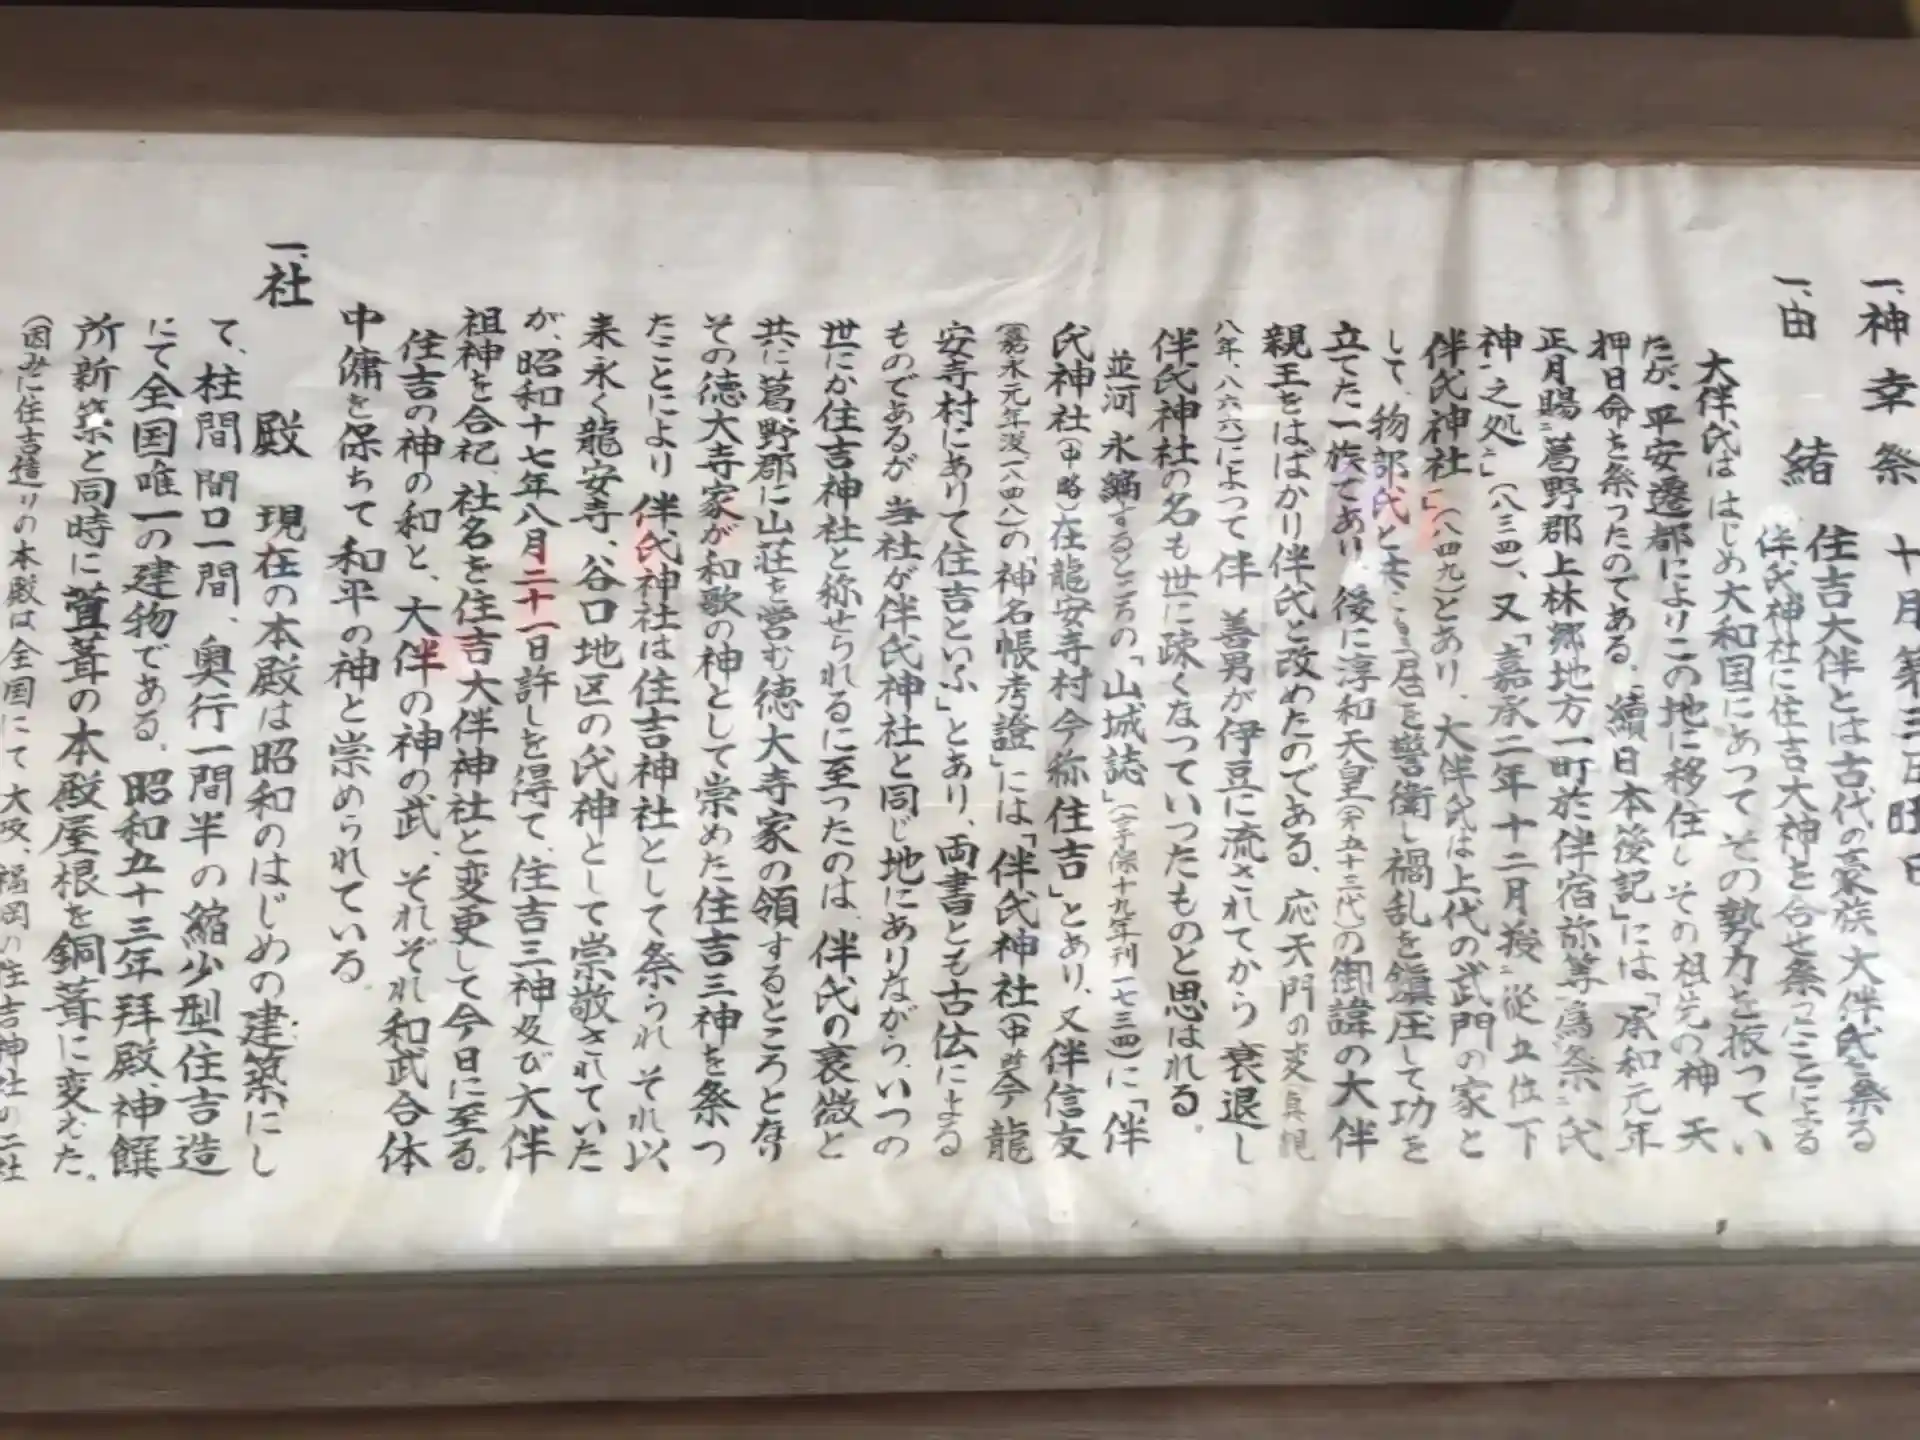 一、神幸祭 十月第三日曜日
一、由緒 住吉大伴とは古代の豪族大伴氏を祭る
伴氏神社に住吉大神を合せ祭ったことによる
大伴氏は はじめ大和国にあつて その勢力を振つてい
たが、平安遷都によりこの地に移住し その祖先の神 天
押日命を祭つたのである。「續日本後記」には「承和元年
正月賜葛野郡上林郷地方一町於伴宿祢等為祭氏
神之処」(八三四)、又「嘉承二年十二月授従五位下
伴氏神社」(八四九)とあり、大伴氏は上代の武門の家と
して、物部氏と共に皇居を警衛し禍乱を鎮圧して功を
立てた一族であり 後に淳和天皇(第五十三代)の御諱の大伴
親王をはばかり伴氏と改めたのである、応天門の変(貞観
八年、八六六)によつて 伴 善男が伊豆に流されてから 衰退し
伴氏神社の名も世に疎くなつていつたものと思はれる。
並河 永編するところの「山城誌」(享保十九年刊一七三四)に「伴
氏神社(中略)在龍安寺村今称住吉」とあり、又伴信友
(嘉永元年没一八四八)の「神名帳考證」には「伴氏神社(中略)今龍
安寺村にありて住吉といふ」とあり、両書とも古伝による
ものであるが、当社が伴氏神社と同じ地にありながら、いつの
世にか住吉神社と称せられるに至つたのは、伴氏の衰微と
共に葛野郡に山荘を営む徳大寺家の領するところとなり
その徳大寺家が和歌の神として崇めた住吉三神を祭つ
たことにより 伴氏神社は住吉神社として祭られ それ以
来永く龍安寺、谷口地区の氏神として崇敬されていた
が、昭和十七年八月二十一日許しを得て、住吉三神及び大伴
祖神を合祀、社名を住吉大伴神社と変更して今日に至る。
住吉の神の和と、大伴の神の武、それぞれ和武合体
中庸を保ちて 和平の神と崇められている。
一、社殿 現在の本殿は昭和のはじめの建築にし
て、柱間 間口一間、奥行一間半の縮少型住吉造
にて全国唯一の建物である。昭和五十三年拝殿、神饌
所新築と同時に萱葺の本殿屋根を銅葺に変えた。
(因みに住吉造りの本殿は全国にて 大阪、福岡の住吉神社の二社